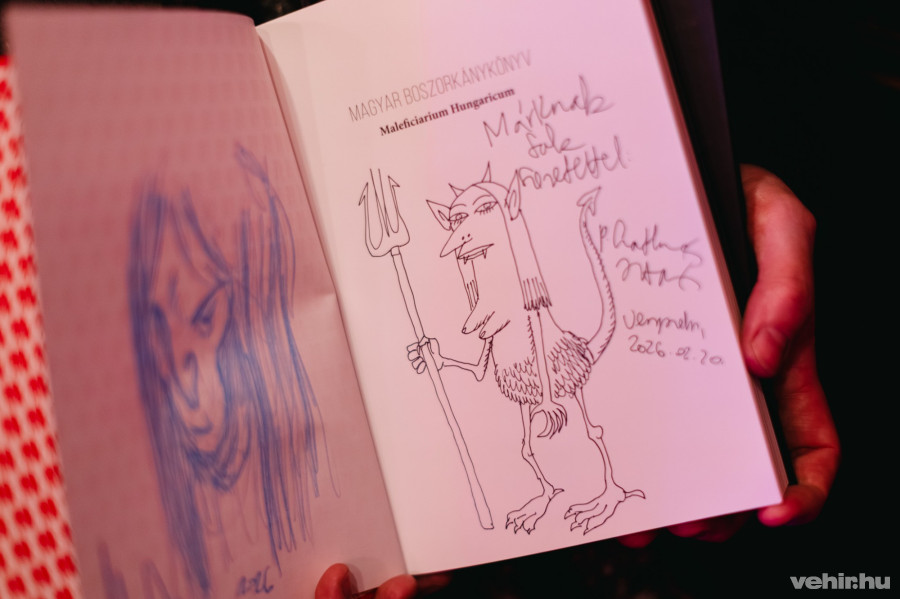 MAGYAR BOSZORKÁNYKÖNYV
Maleficiarium Hungaricum
Márknak
sok
szeretettel:
2026.02.20.
2026
vehir.hu